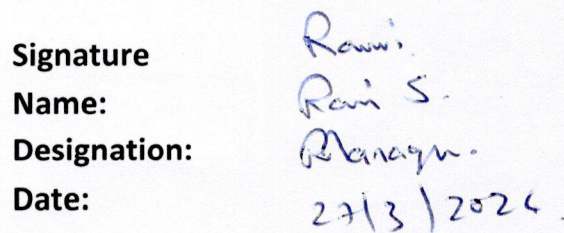 Signature
Name: Ravi S.
Designation: Manager.
Date: 27/3/2024